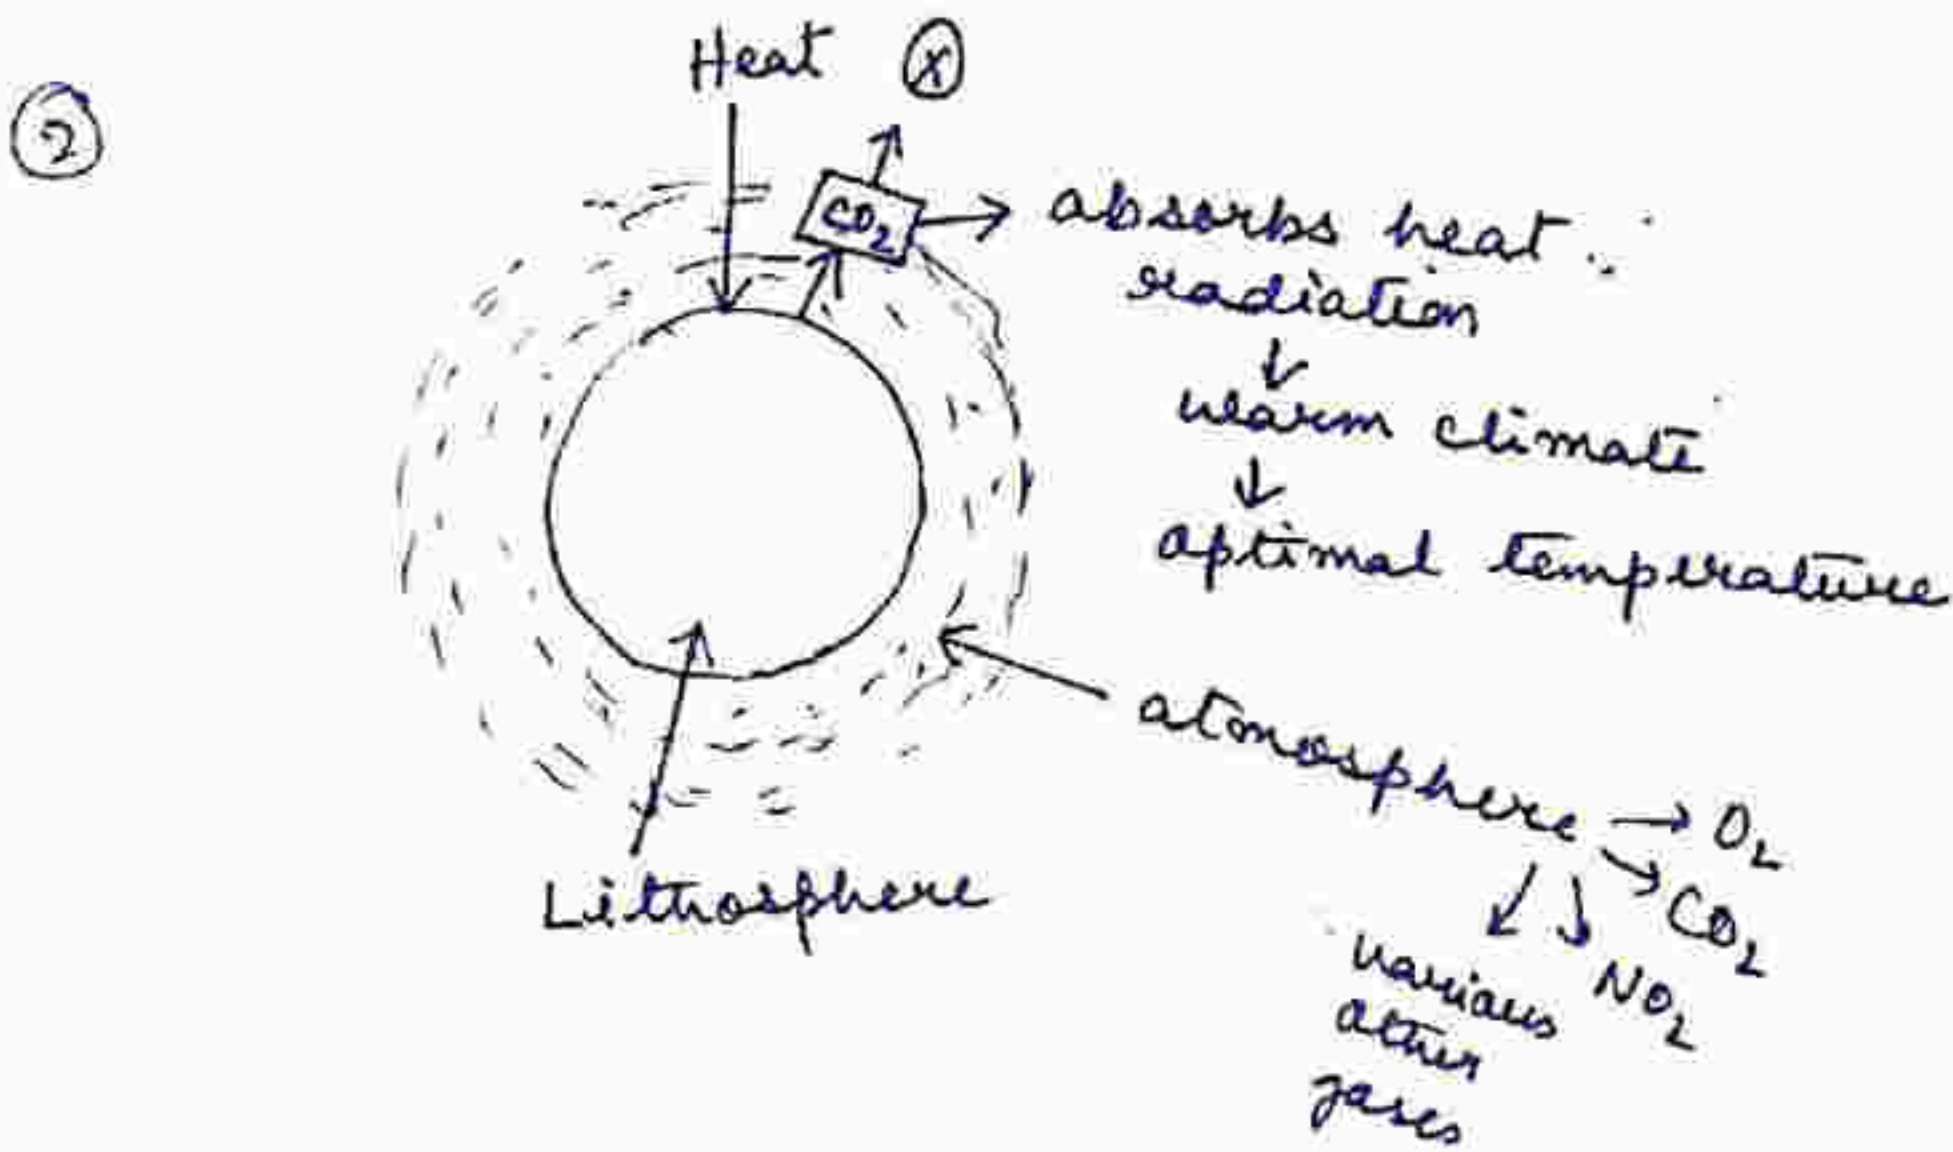 ②
Heat ⓧ
CO₂
absorbs heat
radiation
↓
warm climate
↓
optimal temperature
atmosphere → O₂
CO₂
NO₂
various
other
gases
Lithosphere